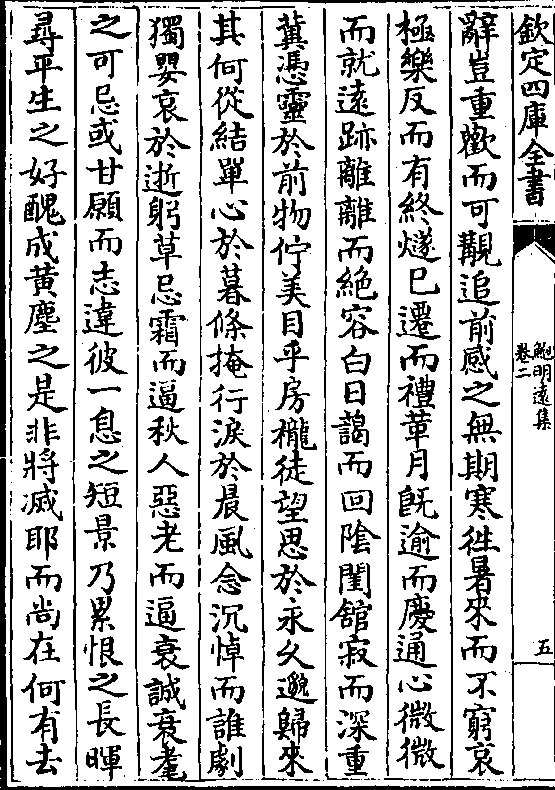 欽定四庫全書
鮑明遠集
卷二
五
辭豈重歡而可覯追前感之無期寒徃暑來而不窮哀
極樂反而有終燧已遷而禮革月旣逾而慶通心微微
而就遠跡離離而絶容白日藹而回陰閨舘寂而深重
冀憑靈於前物佇美目乎房櫳徒望思於永久邈歸來
其何從結單心於暮條掩行淚於晨風念沉悼而誰劇
獨嬰哀於逝躬草忌霜而逼秋人惡老而逼衰誠衰耄
之可忌或甘願而志違彼一息之短景乃累恨之長暉
尋平生之好醜成黃塵之是非將滅耶而尚在何有去